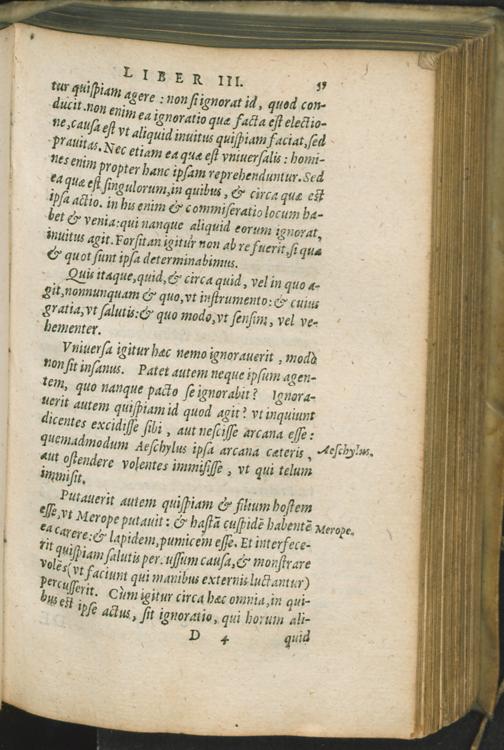 LIBER III.
tur quispiam agere : non si ignorat id, quod con-
ducit. non enim ea ignoratio quæ facta est electio-
ne, causa est vt aliquid inuitus quispiam faciat, sed
prauitas. Nec etiam ea quæ est vniuersalis : homi-
nes enim propter hanc ipsam reprehenduntur. Sed
ea quæ est singulorum, in quibus, & circa quæ est
ipsa actio. in his enim & commiseratio locum ha-
bet & venia: qui nanque aliquid eorum ignorat,
inuitus agit. Forsitan igitur non ab re fuerit, si quæ
& quot sunt ipsa determinabimus.
Quis itaque, quid, & circa quid, vel in quo a-
git, nonnunquam & quo, vt instrumento: & cuius
gratia, vt salutis: & quo modo, vt sensim, vel ve-
hementer.
Vniuersa igitur hæc nemo ignorauerit, modò
non sit insanus. Patet autem neque ipsum agen-
tem, quo nanque pacto se ignorabit? Ignora-
uerit autem quispiam id quod agit? vt inquiunt
dicentes excidisse sibi, aut nescisse arcana esse:
quemadmodum Aeschylus ipsa arcana cæteris, Aeschylus.
aut ostendere volentes immisisse, vt qui telum
immisit.
Putauerit autem quispiam & filium hostem
esse, vt Merope putauit: & hastā cuspidē habentē Merope.
ea carere: & lapidem, pumicem esse. Et interfece-
rit quispiam salutis per.ussum causa, & monstrare
volēs (vt faciunt qui manibus externis luctantur)
percusserit. Cùm igitur circa hæc omnia, in qui-
bus est ipse actus, sit ignoratio, qui horum ali-
D 4 quid